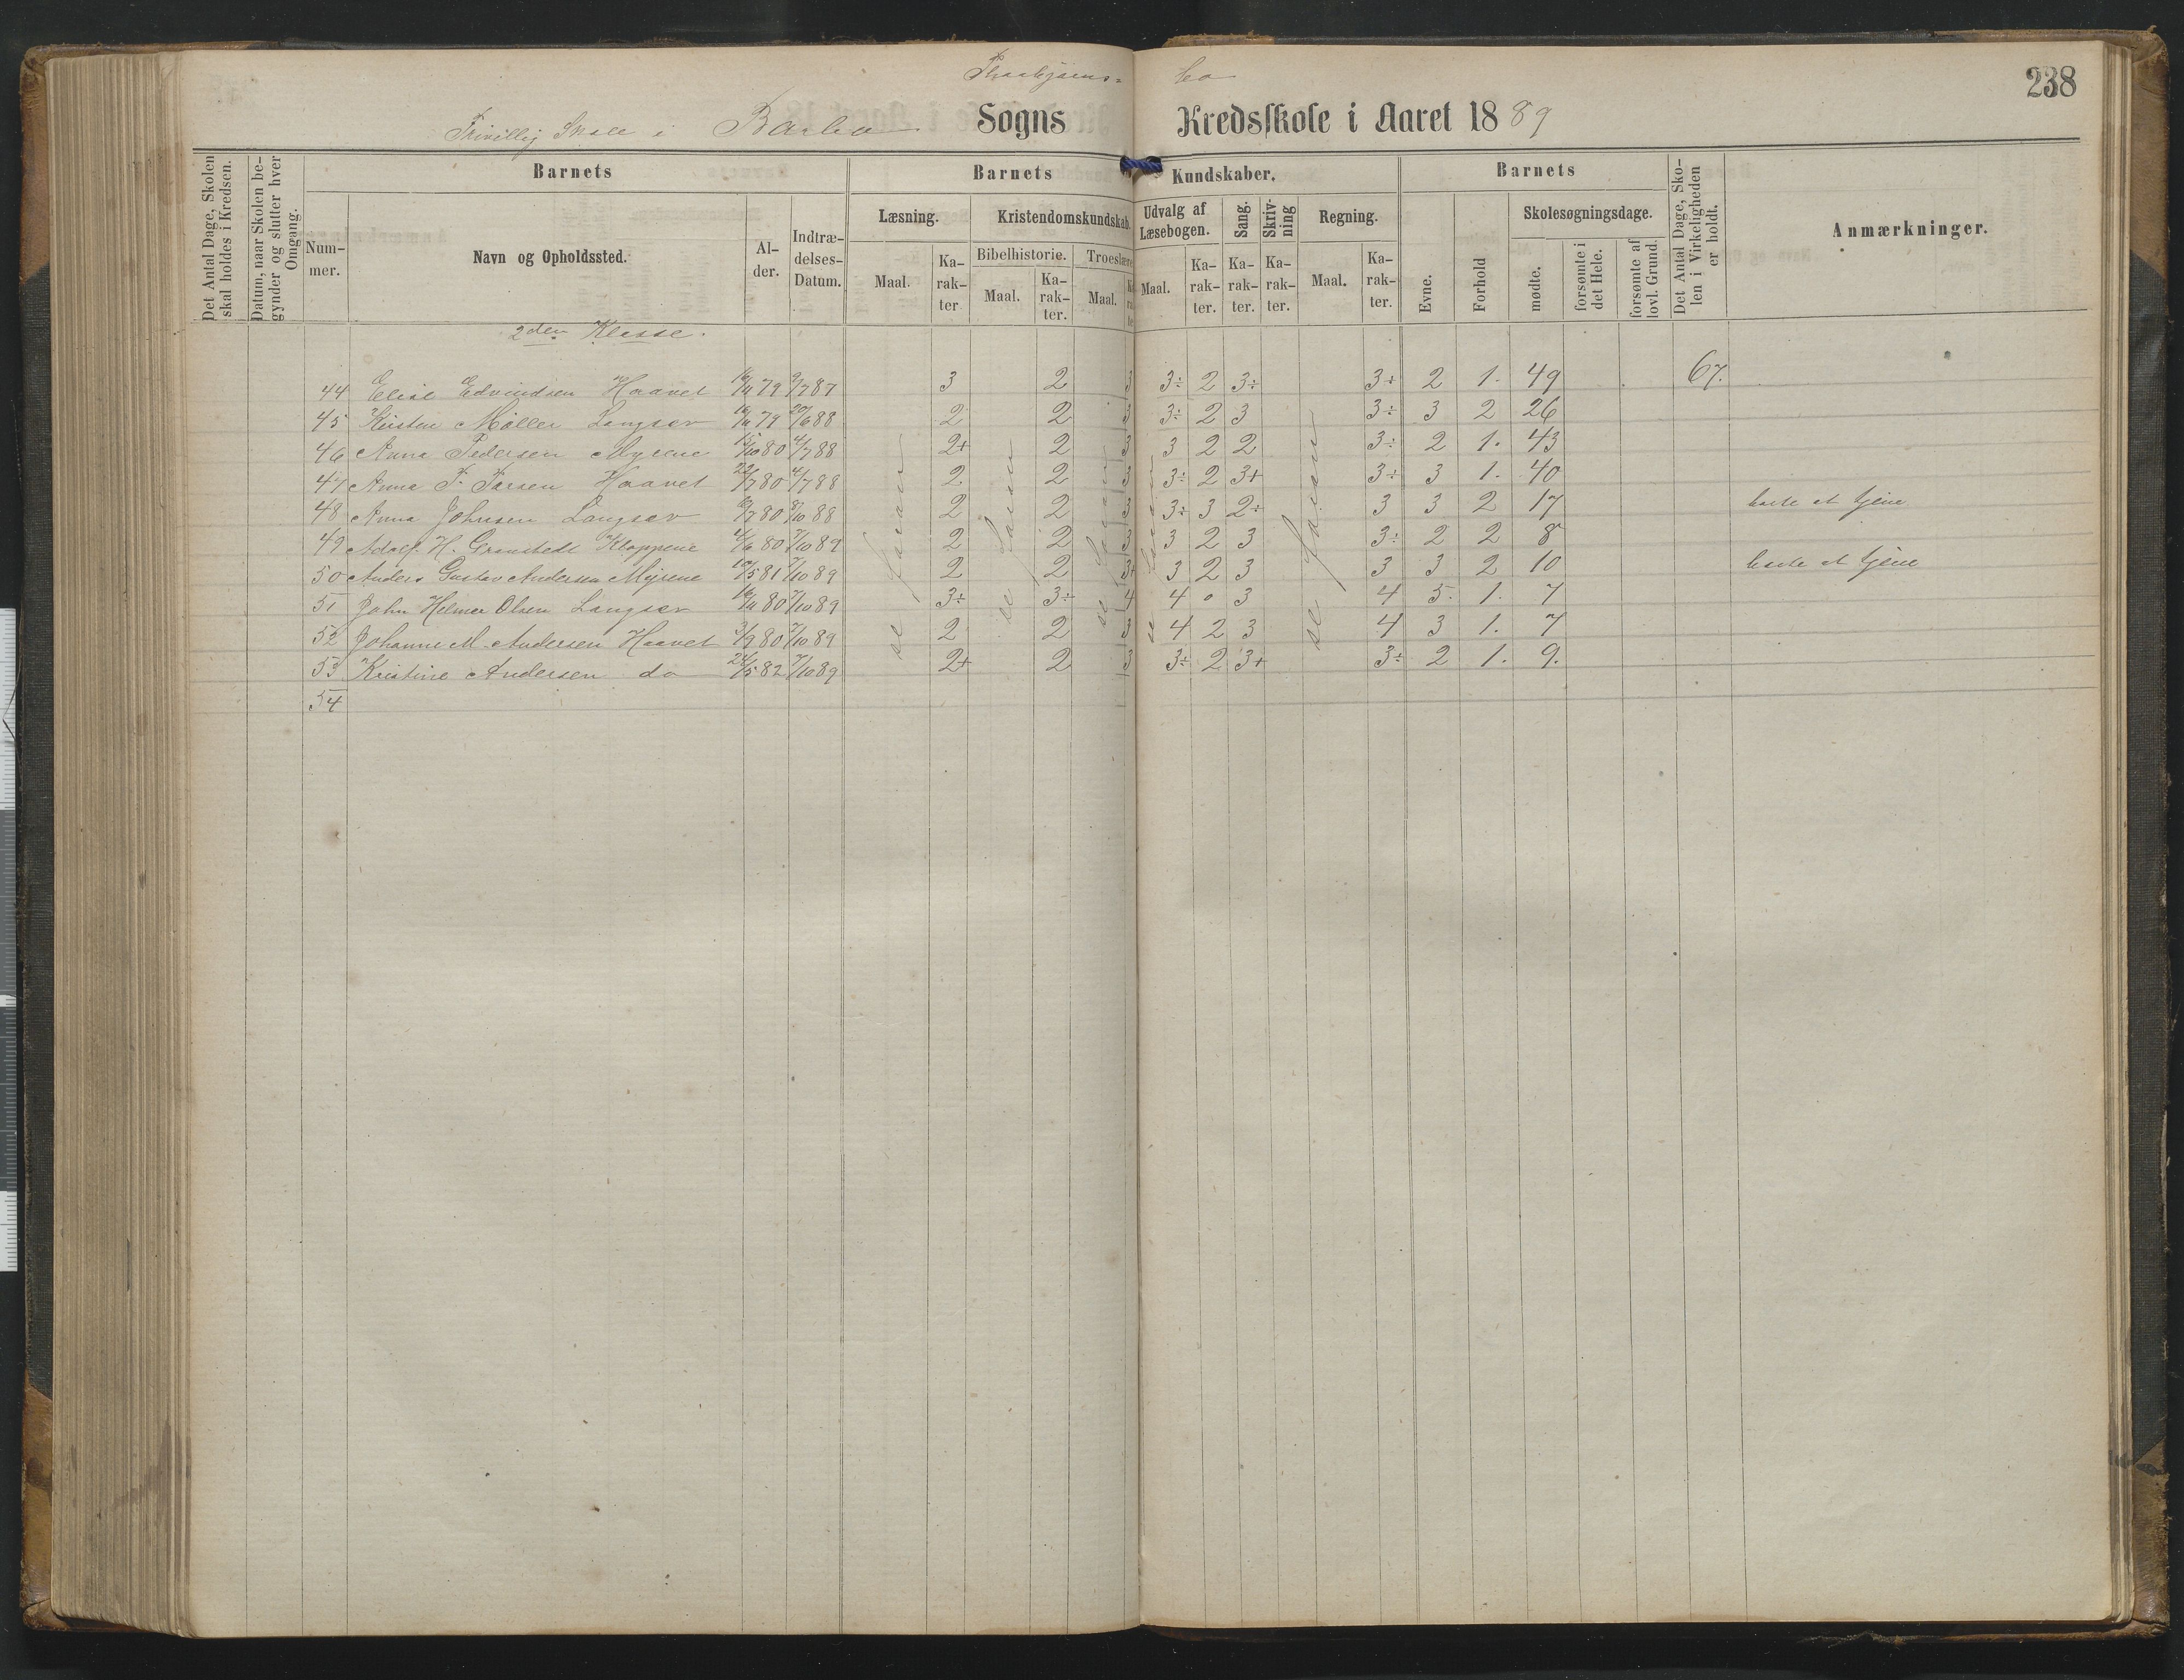 238
Frivillig Skole i Barbo Sogns Kredsskole i Aaret 1889
Det Antal Dage, Skolen skal holdes i Kredsen.
Datum, naar Skolen begynder og slutter hver Omgang.
Barnets
Nummer.
Navn og Opholdssted.
Alder.
Indtrædelses-Datum.
Barnets Kundskaber.
Læsning.
Maal.
Karakter
Kristendomskundskab.
Bibelhistorie.
Maal.
Karakter.
Troeslære
Maal.
Udvalg af Læsebogen.
Maal.
Karakter.
Sang.
Karakter.
Skrivning
Karakter.
Regning.
Maal.
Karakter.
Barnets
Evne.
Forhold
Skolesøgningsdage.
mødte.
forsømte i det Hele.
forsømte af lovl. Grund.
Det Antal Dage, Skolen i Virkeligheden er holdt.
Anmærkninger.
2den Klasse.
44 Elise Edvindsen Haavet 16/11 79 9/7 87 3 2 3 3÷ 2 3÷ 3+ 2 1. 49 67.
45 Kirsten Møller Langsev 79 20/6 88 2 2 3 3÷ 2 3 3÷ 3 2 26
46 Anna Pedersen Myrene 15/10 80 4/7 88 2+ 2 3 3 2 2 3÷ 2 1. 43
47 Anna F. Larsen Haavet 22/7 80 4/7 88 2 2 3 3÷ 2 3+ 3÷ 3 1. 40
48 Anna Johnsen Langsev 80 8/10 88 2 2 3 3÷ 3 2÷ 3 3 2 17 borte at tjene
49 Adolf H. Granstedt Kloppene 4/6 80 7/10 89 2 2 3 3 2 3 3÷ 2 2 8
50 Anders Gustav Andersen Myrene 10/5 81 7/10 89 2 2 3+ 3 2 3 3 3 2 10 borte at tjene
51 John Helmer Olsen Langsev 16/11 80 7/10 89 3÷ 3÷ 4 4 0 3 4 5. 1. 7
52 Johanne M. Andersen Haavet 3/9 80 7/10 89 2 2 3 4 2 3 4 3 1. 7
53 Kristine Andersen do 24/5 82 7/10 89 2+ 2 3 3÷ 2 3+ 3÷ 2 1. 9.
54